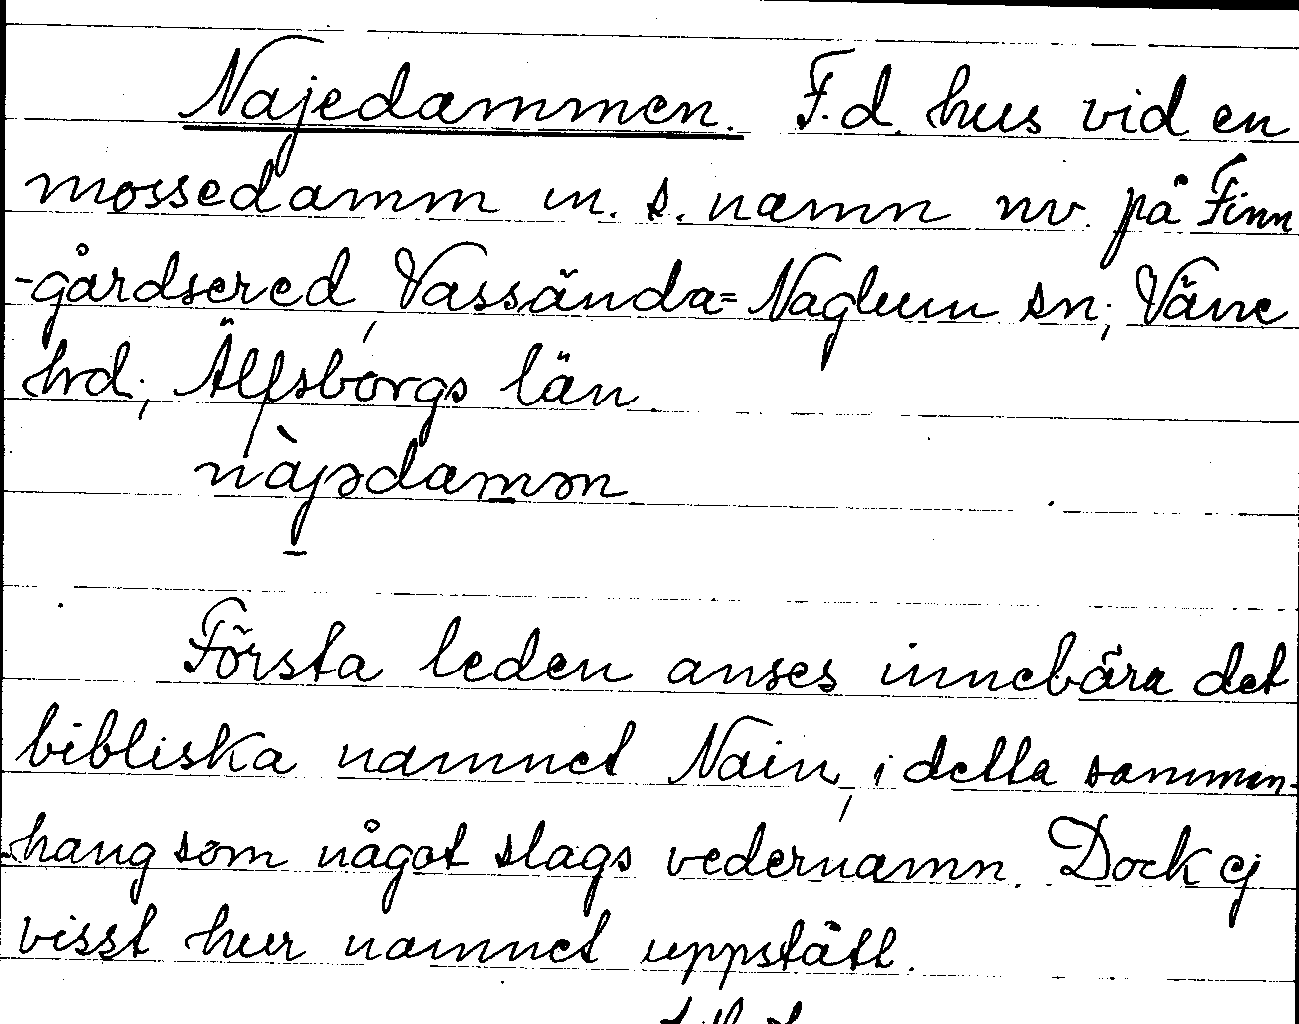 Najedammen. F.d. hus vid en
mossedamm m. s. namn nv. på Finn
-gårdsered, Vassända=Naglum sn; Väne
hrd; Älfsborgs län.
nàjədamən
Första leden anses innebära det
bibliska namnet Nain, i detta samman-
-hang som något slags vedernamn. Dock ej
visst hur namnet uppstått.